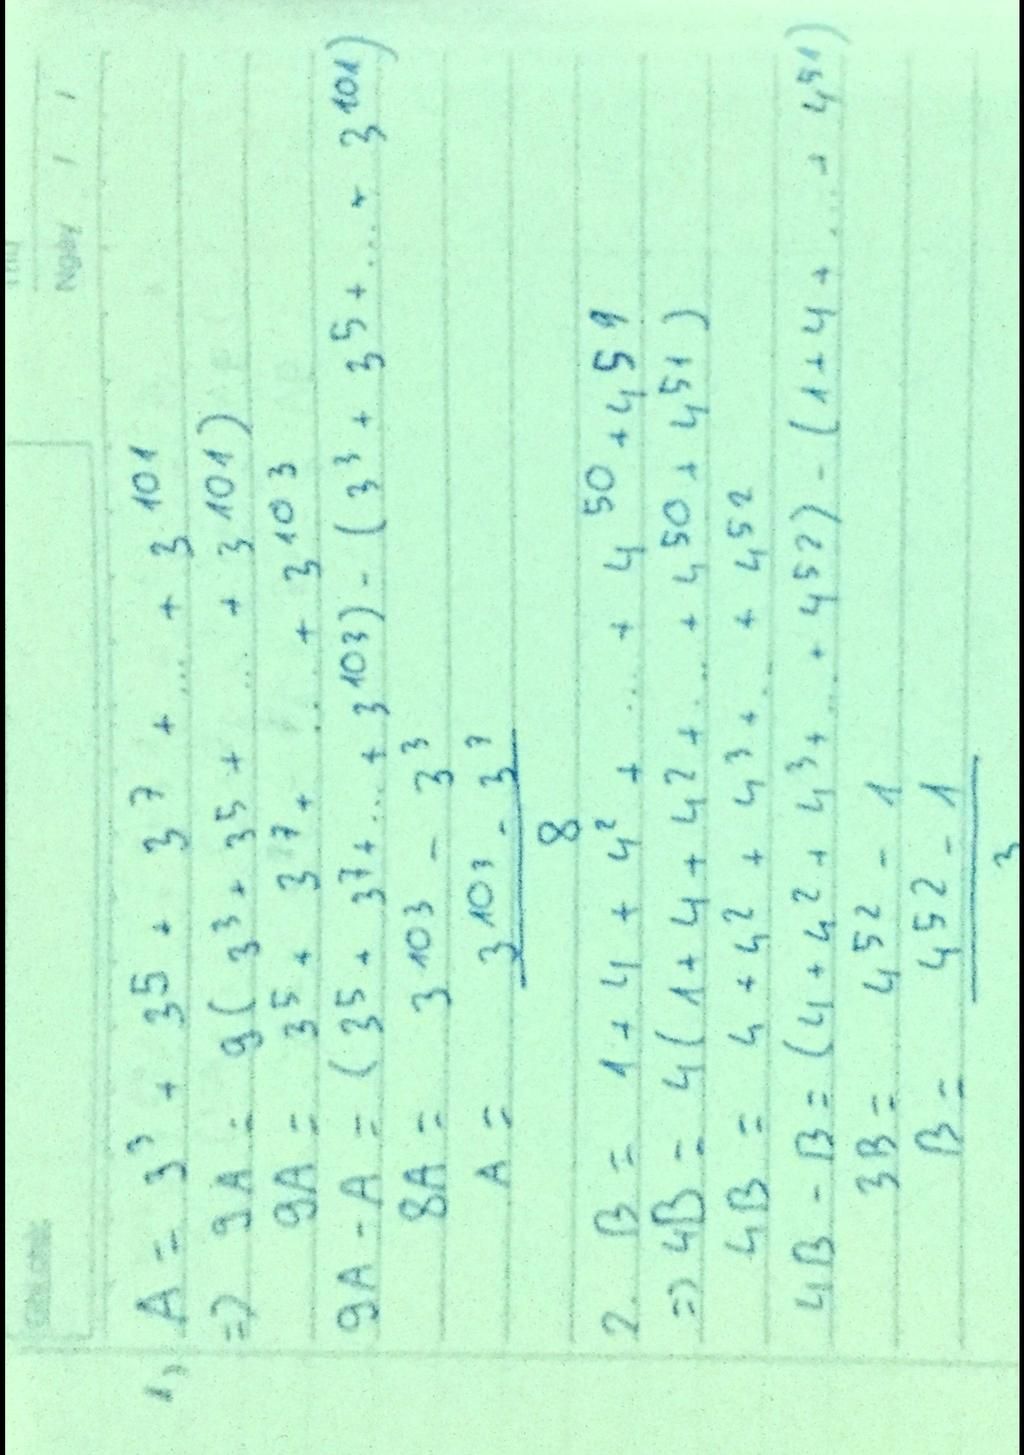 Ngày / /
1) A = 3³ + 3⁵ + 3⁷ + ... + 3¹⁰¹
=> 9A = 9(3³ + 3⁵ + ... + 3¹⁰¹)
9A = 3⁵ + 3⁷ + ... + 3¹⁰³
9A - A = (3⁵ + 3⁷ + ... + 3¹⁰³) - (3³ + 3⁵ + ... + 3¹⁰¹)
8A = 3¹⁰³ - 3³
A = 3¹⁰³ - 3³
8
2. B = 1 + 4 + 4² + ... + 4⁵⁰ + 4⁵¹
=> 4B = 4(1 + 4 + 4² + ... + 4⁵⁰ + 4⁵¹)
4B = 4 + 4² + 4³ + ... + 4⁵²
4B - B = (4 + 4² + 4³ + ... + 4⁵²) - (1 + 4 + ... + 4⁵¹)
3B = 4⁵² - 1
B = 4⁵² - 1
3